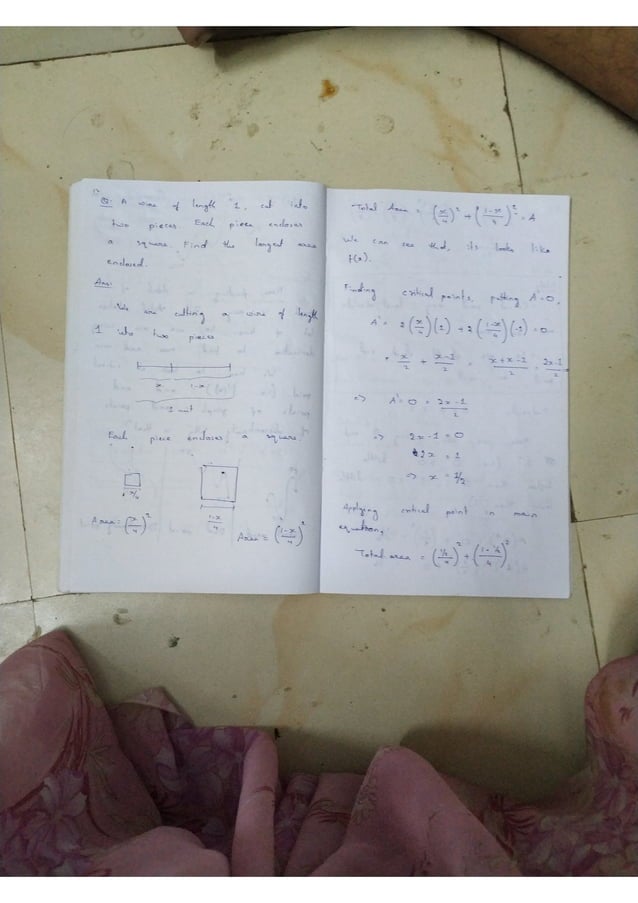 Q: A wire of length 1, cut into
two pieces. Each piece encloses
a square. Find the largest area
enclosed.
Ans:
We are cutting a wire of length
1 into two pieces
x 1-x
1 unit
Each piece encloses a square.
x/4
1-x/4
Area = (x/4)²
Area = (1-x/4)²
Total Area = (x/4)² + (1-x/4)² = A
We can see that, its looks like
f(x).
Finding critical points, putting A'=0,
A' = 2(x/4)(1) + 2(1-x/4)(-1) = 0
= x/2 + x-1/2 = x+x-1/2 = 2x-1/2
=> A' = 0 = 2x-1/2
=> 2x-1 = 0
2x = 1
=> x = 1/2
Applying critical point in main
equation,
Total area =